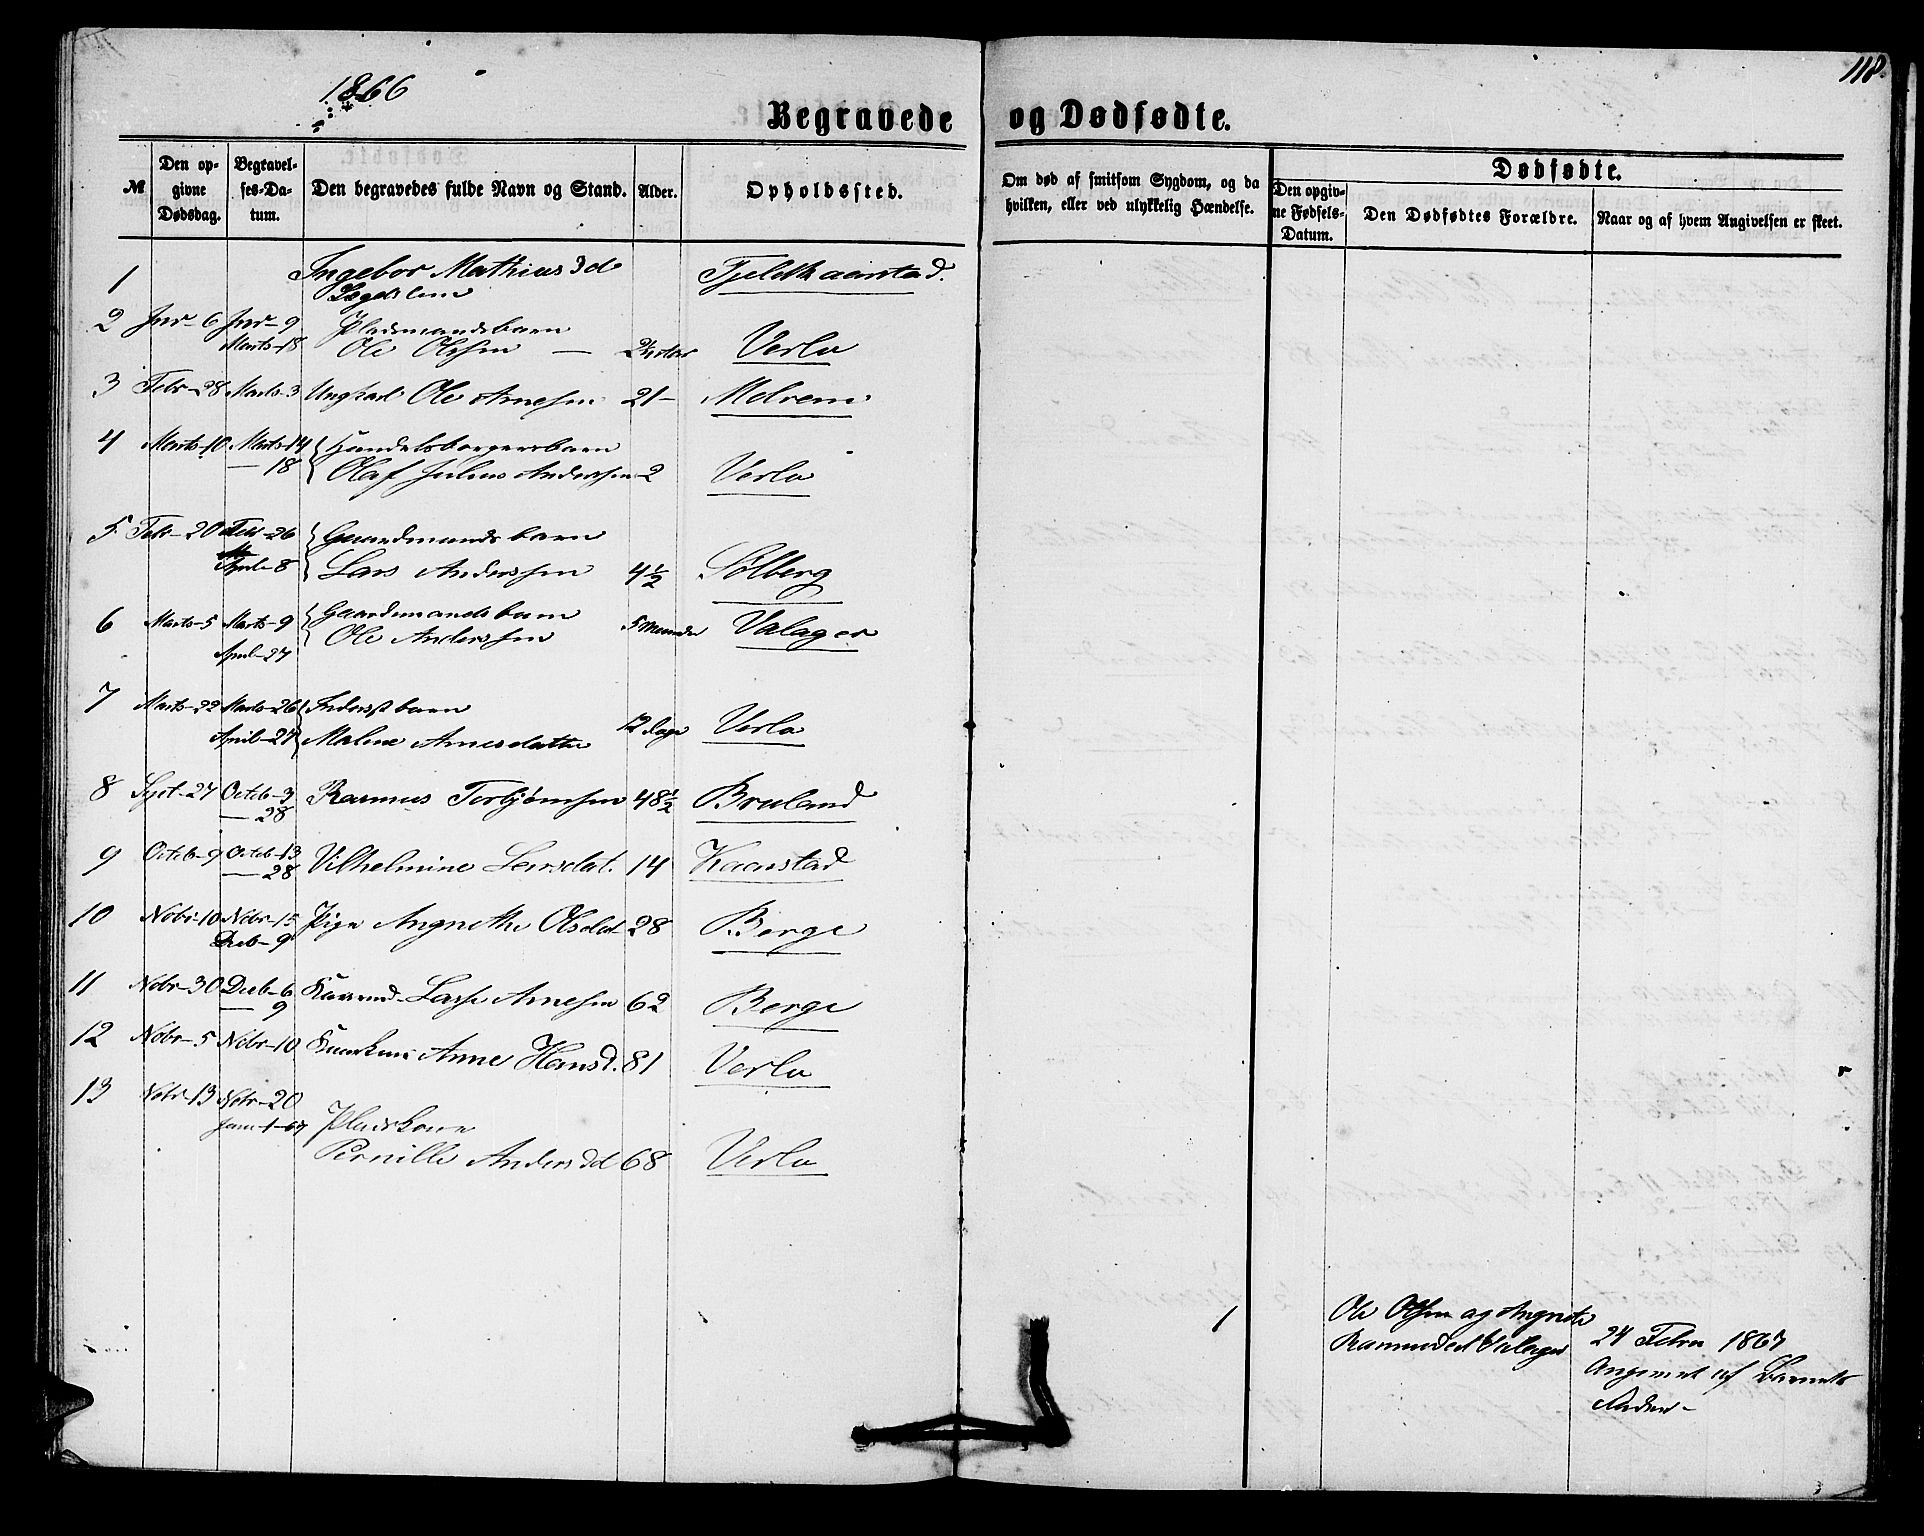 118.
1866
Begravede og Dødfødte.
№ | Den opgivne Dødsdag. | Begravelses-Datum. | Den begravedes fulde Navn og Stand. | Alder. | Opholdssted. | Om død af smitsom Sygdom, og da hvilken, eller ved ulykkelig Hændelse. | Dødfødte.
Den opgivne Fødsels-Datum. | Den Dødfødtes Forældre. | Naar og af hvem Angivelsen er skeet.
1 Ingebor Mathias Dd Fjeldkaarstad.
2 Jnr-6 Jnr-9 Pladsmandsbarn
Marts-18 Ole Olsen — Verlo
3 Febr-28 Marts-3 Ungkarl Ole Arnesen 21- Melvem
4 Marts-10 Marts-14 Handelsborgersbarn
— 18 Olaf Julius Anderssen 2 Verlo
5 Febr-20 Febr-26 Gaardmandsbarn
April-8 Lars Anderssen 4½ Sølberg
6 Marts-5 Marts-9 Gaardmandsbarn 5 Maaneder Valager
April-27 Ole Anderssen
7 Marts-22 Marts-26 Inderstbarn
April-27 Malene Arnesdatter 12 Dage Verlo
8 Sept-27 Octob-3 Rasmus Torbjørnsen 48½ Bruland
— 28
9 Octob-9 Octob-13 Vilhelmine Larsdat. 14 Kaarstad
— 28
10 Nobr-10 Nobr-15 Pige Angnethe Olsdat 28 Berge
Decb-9
11 Nobr-30 Decb-6 Kaarmd- Lasse Arnesen 62 Berge
— 9
12 Nobr-5 Nobr-10 Kaarkone Anne Hansd. 81 Verlo
13 Nobr-13 Nobr-20
Jan-1-67 Pladskone
Pernille Anders Dd 68 Verlo
1 Ole Olsen og Angnete
Rasmusdat Valager 24 Febru 1867
Angivet af Barnets
Fader-